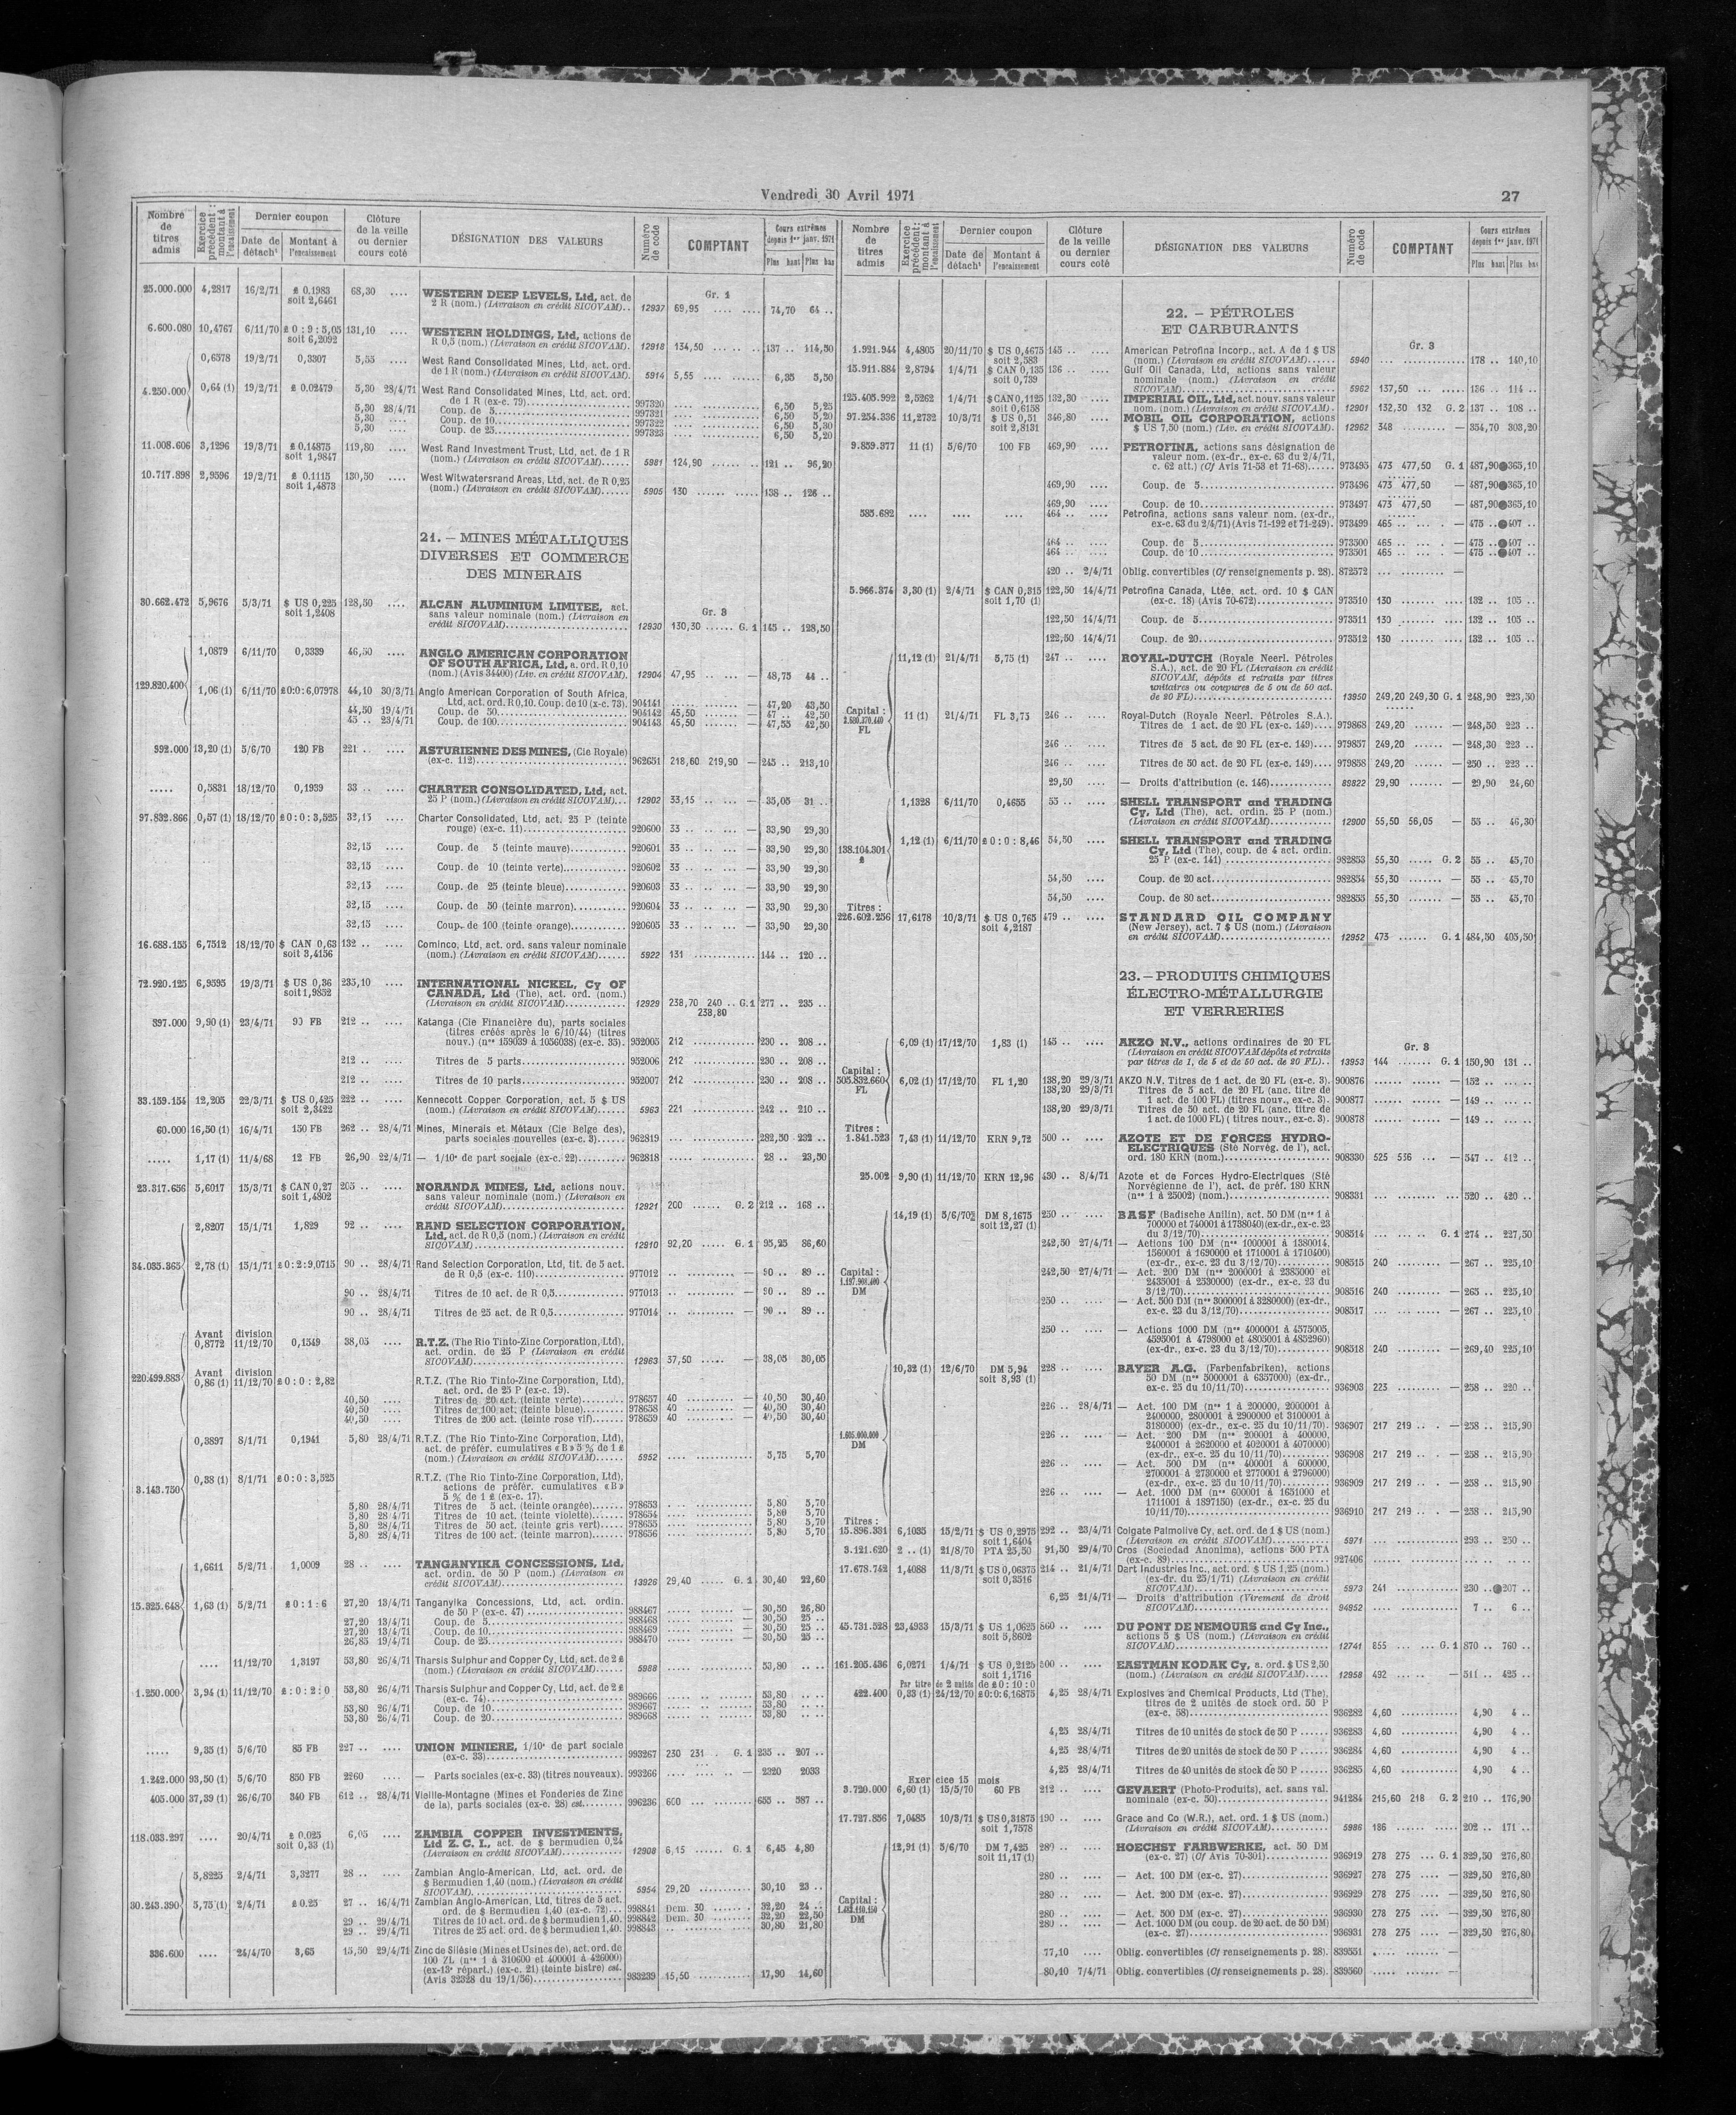 Vendredi 30 Avril 1971
27
Nombre de titres admis | Exercice précédent : montant à l'encaissement | Dernier coupon | Date de détacht | Montant à l'encaissement | Clôture de la veille ou dernier cours coté | DÉSIGNATION DES VALEURS | Numéro de code | COMPTANT | Cours extrêmes depuis 1er janv. 1971 | Plus haut | Plus bas
Gr. 1
25.000.000 4,2817 16/2/71 £ 0,1983 68,30 .... WESTERN DEEP LEVELS, Ltd, act. de
soit 2,6461 2 R (nom.) (Livraison en crédit SICOVAM).. 12937 69,95 74,70 64 ..
6.600.080 10,4767 6/11/70 £ 0 : 9 : 5,05 131,10 .... WESTERN HOLDINGS, Ltd, actions de
soit 6,2092 R 0,5 (nom.) (Livraison en crédit SICOVAM). 12918 134,50 137 .. 114,50
0,6578 19/2/71 0,3307 5,55 .... West Rand Consolidated Mines, Ltd, act. ord.
de 1 R (nom.) (Livraison en crédit SICOVAM). 5914 5,55 6,35 5,50
4.250.000 0,64 (1) 19/2/71 £ 0.02479 5,30 28/4/71 West Rand Consolidated Mines, Ltd, act. ord.
de 1 R (ex-c. 79) 997320 6,50 5,25
5,30 28/4/71 Coup. de 5 997321 6,50 5,20
5,30 .... Coup. de 10 997322 6,50 5,30
5,30 .... Coup. de 25 997323 6,50 5,20
11.008.606 3,1296 19/3/71 £ 0.14875 119,80 .... West Rand Investment Trust, Ltd, act. de 1 R
soit 1,9847 (nom.) (Livraison en crédit SICOVAM) 5981 124,90 121 .. 96,20
10.717.898 2,9596 19/2/71 £ 0.1115 130,50 .... West Witwatersrand Areas, Ltd, act. de R 0,25
soit 1,4873 (nom.) (Livraison en crédit SICOVAM) 5905 130 138 .. 126 ..
21. — MINES MÉTALLIQUES
DIVERSES ET COMMERCE
DES MINERAIS
Gr. 3
30.662.472 5,9676 5/3/71 $ US 0,225 128,50 .... ALCAN ALUMINIUM LIMITEE, act.
soit 1,2408 sans valeur nominale (nom.) (Livraison en
crédit SICOVAM) 12930 130,30 G. 1 145 .. 128,50
1,0879 6/11/70 0,3339 46,50 .... ANGLO AMERICAN CORPORATION
OF SOUTH AFRICA, Ltd, a. ord. R 0,10
(nom.) (Avis 34400) (Liv. en crédit SICOVAM). 12904 47,95 — 48,75 44 ..
129.820.400 1,06 (1) 6/11/70 £0:0:6,07978 44,10 30/3/71 Anglo American Corporation of South Africa,
Ltd, act. ord. R 0,10. Coup. de 10 (x-c. 73). 904141 — 47,20 43,50
44,50 19/4/71 Coup. de 50 904142 45,50 — 47 .. 42,50
45 .. 23/4/71 Coup. de 100 904143 45,50 — 47,55 42,50
392.000 13,20 (1) 5/6/70 120 FB 221 .. .... ASTURIENNE DES MINES, (Cie Royale)
(ex-c. 112) 962651 218,60 219,90 — 245 .. 213,10
..... 0,5831 18/12/70 0,1939 33 .. .... CHARTER CONSOLIDATED, Ltd, act.
25 P (nom.) (Livraison en crédit SICOVAM) 12902 33,15 — 35,05 31 ..
97.832.866 0,57 (1) 18/12/70 £0:0:3,525 32,15 .... Charter Consolidated, Ltd, act. 25 P (teinte
rouge) (ex-c. 11) 920600 33 — 33,90 29,30
32,15 .... Coup. de 5 (teinte mauve) 920601 33 — 33,90 29,30
32,15 .... Coup. de 10 (teinte verte) 920602 33 — 33,90 29,30
32,15 .... Coup. de 25 (teinte bleue) 920603 33 — 33,90 29,30
32,15 .... Coup. de 50 (teinte marron) 920604 33 — 33,90 29,30
32,15 .... Coup. de 100 (teinte orange) 920605 33 — 33,90 29,30
16.688.155 6,7512 18/12/70 $ CAN 0,63 132 .. .... Cominco, Ltd, act. ord. sans valeur nominale
soit 3,4156 (nom.) (Livraison en crédit SICOVAM) 5922 131 144 .. 120 ..
72.920.125 6,9595 19/3/71 $ US 0,36 235,10 .... INTERNATIONAL NICKEL, Cy OF
soit 1,9852 CANADA, Ltd (The), act. ord. (nom.)
(Livraison en crédit SICOVAM) 12929 238,70 240 .. G.1 277 .. 235 ..
238,80
397.000 9,90 (1) 23/4/71 90 FB 212 .. .... Katanga (Cie Financière du), parts sociales
(titres créés après le 6/10/44) (titres
nouv.) (nos 159039 à 1056038) (ex-c. 35). 952005 212 230 .. 208 ..
212 .. .... Titres de 5 parts 952006 212 230 .. 208 ..
212 .. .... Titres de 10 parts 952007 212 230 .. 208 ..
33.159.154 12,205 22/3/71 $ US 0,425 222 .. .... Kennecott Copper Corporation, act. 5 $ US
soit 2,3422 (nom.) (Livraison en crédit SICOVAM) 5963 221 242 .. 210 ..
60.000 16,50 (1) 16/4/71 150 FB 262 .. 28/4/71 Mines, Minerais et Métaux (Cie Belge des),
parts sociales nouvelles (ex-c. 3) 962819 282,50 232 ..
..... 1,17 (1) 11/4/68 12 FB 26,90 22/4/71 — 1/10e de part sociale (ex-c. 22) 962818 28 .. 23,50
23.317.656 5,6017 15/3/71 $ CAN 0,27 205 .. .... NORANDA MINES, Ltd, actions nouv.
soit 1,4802 sans valeur nominale (nom.) (Livraison en
crédit SICOVAM) 12921 200 G. 2 212 .. 168 ..
2,8207 15/1/71 1,829 92 .. .... RAND SELECTION CORPORATION,
Ltd, act. de R 0,5 (nom.) (Livraison en crédit
SICOVAM) 12910 92,20 G. 1 95,25 86,60
34.035.365 2,78 (1) 15/1/71 £0:2:9,0715 90 .. 28/4/71 Rand Selection Corporation, Ltd, tit. de 5 act.
de R 0,5 (ex-c. 110) 977012 — 90 .. 89 ..
90 .. 28/4/71 Titres de 10 act. de R 0,5 977013 — 90 .. 89 ..
90 .. 28/4/71 Titres de 25 act. de R 0,5 977014 — 90 .. 89 ..
Avant division
0,8772 11/12/70 0,1549 38,05 .... R.T.Z. (The Rio Tinto-Zinc Corporation, Ltd),
act. ordin. de 25 P (Livraison en crédit
SICOVAM) 12963 37,50 — 38,05 30,05
220.499.883 Avant division
0,86 (1) 11/12/70 £0:0:2,82 R.T.Z. (The Rio Tinto-Zinc Corporation, Ltd),
act. ord. de 25 P (ex-c. 19).
40,50 .... Titres de 20 act. (teinte verte) 978657 40 — 40,50 30,40
40,50 .... Titres de 100 act. (teinte bleue) 978658 40 — 40,50 30,40
40,50 .... Titres de 200 act. (teinte rose vif) 978659 40 — 40,50 30,40
0,3897 8/1/71 0,1941 5,80 28/4/71 R.T.Z. (The Rio Tinto-Zinc Corporation, Ltd),
act. de préfér. cumulatives « B » 5 % de 1 £
(nom.) (Livraison en crédit SICOVAM) 5952 5,75 5,70
3.143.750 0,38 (1) 8/1/71 £0:0:3,525 R.T.Z. (The Rio Tinto-Zinc Corporation, Ltd),
actions de préfér. cumulatives « B »
5 % de 1 £ (ex-c. 17).
5,80 28/4/71 Titres de 5 act. (teinte orangée) 978653 5,80 5,70
5,80 28/4/71 Titres de 10 act. (teinte violette) 978654 5,80 5,70
5,80 28/4/71 Titres de 50 act. (teinte gris vert) 978655 5,80 5,70
5,80 28/4/71 Titres de 100 act. (teinte marron) 978656 5,80 5,70
1,6611 5/2/71 1,0009 28 .. .... TANGANYIKA CONCESSIONS, Ltd,
act. ordin. de 50 P (nom.) (Livraison en
crédit SICOVAM) 13926 29,40 G. 1 30,40 22,60
15.325.648 1,63 (1) 5/2/71 £0:1:6 27,20 13/4/71 Tanganyika Concessions, Ltd, act. ordin.
de 50 P (ex-c. 47) 988467 — 30,50 26,80
27,20 13/4/71 Coup. de 5 988468 — 30,50 25 ..
27,20 13/4/71 Coup. de 10 988469 — 30,50 25 ..
26,85 19/4/71 Coup. de 25 988470 — 30,50 25 ..
.... 11/12/70 1,3197 53,80 26/4/71 Tharsis Sulphur and Copper Cy, Ltd, act. de 2 £
(nom.) (Livraison en crédit SICOVAM) 5988 53,80 ....
1.250.000 3,94 (1) 11/12/70 £:0:2:0 53,80 26/4/71 Tharsis Sulphur and Copper Cy, Ltd, act. de 2 £
(ex-c. 74) 989666 53,80 ....
53,80 26/4/71 Coup. de 10 989667 53,80 ....
53,80 26/4/71 Coup. de 20 989668 53,80 ....
..... 9,35 (1) 5/6/70 85 FB 227 .. .... UNION MINIERE, 1/10e de part sociale
(ex-c. 33) 993267 230 231 . G. 1 235 .. 207 ..
1.242.000 93,50 (1) 5/6/70 850 FB 2260 .... — Parts sociales (ex-c. 33) (titres nouveaux). 993266 — 2320 2033
405.000 37,39 (1) 26/6/70 340 FB 612 .. 28/4/71 Vieille-Montagne (Mines et Fonderies de Zinc
de la), parts sociales (ex-c. 28) est. 996236 600 655 .. 587 ..
118.033.297 .... 20/4/71 £ 0.025 6,05 .... ZAMBIA COPPER INVESTMENTS,
soit 0,33 (1) Ltd Z. C. I., act. de $ bermudien 0,24
(Livraison en crédit SICOVAM) 12908 6,15 G. 1 6,45 4,80
5,8225 2/4/71 3,3277 28 .. .... Zambian Anglo-American, Ltd, act. ord. de
$ Bermudien 1,40 (nom.) (Livraison en crédit
SICOVAM) 5954 29,20 30,10 23 ..
30.243.390 5,75 (1) 2/4/71 £ 0.25 27 .. 16/4/71 Zambian Anglo-American, Ltd, titres de 5 act.
ord. de $ Bermudien 1,40 (ex-c. 72) 998841 Dem. 30 32,20 24 ..
29 .. 29/4/71 Titres de 10 act. ord. de $ bermudien 1,40. 998842 Dem. 30 32,20 22,50
29 .. 29/4/71 Titres de 25 act. ord. de $ bermudien 1,40. 998843 30,80 21,80
336.600 .... 24/4/70 3,65 15,50 29/4/71 Zinc de Silésie (Mines et Usines de), act. ord. de
100 ZL (nos 1 à 310600 et 400001 à 426000)
(ex-13e répart.) (ex-c. 21) (teinte bistre) est.
(Avis 32328 du 19/1/56) 983239 15,50 17,90 14,60
Nombre de titres admis | Exercice précédent : montant à l'encaissement | Dernier coupon | Date de détacht | Montant à l'encaissement | Clôture de la veille ou dernier cours coté | DÉSIGNATION DES VALEURS | Numéro de code | COMPTANT | Cours extrêmes depuis 1er janv. 1971 | Plus haut | Plus bas
22. — PÉTROLES
ET CARBURANTS
Gr. 3
1.921.944 4,4805 20/11/70 $ US 0,4675 145 .. .... American Petrofina Incorp., act. A de 1 $ US
soit 2,583 (nom.) (Livraison en crédit SICOVAM) 5940 178 .. 140,10
15.911.884 2,8794 1/4/71 $ CAN 0,135 136 .. .... Gulf Oil Canada, Ltd, actions sans valeur
soit 0,739 nominale (nom.) (Livraison en crédit
SICOVAM) 5962 137,50 136 .. 114 ..
125.405.992 2,5262 1/4/71 $ CAN 0,1125 132,30 .... IMPERIAL OIL, Ltd, act. nouv. sans valeur
soit 0,6158 nom. (nom.) (Livraison en crédit SICOVAM) 12901 132,30 132 G. 2 137 .. 108 ..
97.254.336 11,2732 10/3/71 $ US 0,51 346,80 .... MOBIL OIL CORPORATION, actions
soit 2,8131 $ US 7,50 (nom.) (Liv. en crédit SICOVAM). 12962 348 — 354,70 303,20
9.859.377 11 (1) 5/6/70 100 FB 469,90 .... PETROFINA, actions sans désignation de
valeur nom. (ex-dr., ex-c. 63 du 2/4/71,
c. 62 att.) (Cf Avis 71-53 et 71-68) 973495 473 477,50 G. 1 487,90 ●365,10
469,90 .... Coup. de 5 973496 473 477,50 — 487,90 ●365,10
469,90 .... Coup. de 10 973497 473 477,50 — 487,90 ●365,10
585.682 .... .... .... 464 .. .... Petrofina, actions sans valeur nom. (ex-dr.,
ex-c. 63 du 2/4/71) (Avis 71-192 et 71-249). 973499 465 — 475 .. ●407 ..
464 .. .... Coup. de 5 973500 465 — 475 .. ●407 ..
464 .. .... Coup. de 10 973501 465 — 475 .. ●407 ..
420 .. 2/4/71 Oblig. convertibles (Cf renseignements p. 28). 872572 —
5.966.374 3,30 (1) 2/4/71 $ CAN 0,315 122,50 14/4/71 Petrofina Canada, Ltée, act. ord. 10 $ CAN
soit 1,70 (1) (ex-c. 18) (Avis 70-672) 973510 130 — 132 .. 105 ..
122,50 14/4/71 Coup. de 5 973511 130 — 132 .. 105 ..
122,50 14/4/71 Coup. de 20 973512 130 — 132 .. 105 ..
11,12 (1) 21/4/71 5,75 (1) 247 .. .... ROYAL-DUTCH (Royale Neerl. Pétroles
S.A.), act. de 20 FL (Livraison en crédit
SICOVAM, dépôts et retraits par titres
unitaires ou coupures de 5 ou de 50 act.
de 20 FL) 13950 249,20 249,30 G. 1 248,90 223,50
Capital : FL 11 (1) 21/4/71 FL 3,75 246 .. .... Royal-Dutch (Royale Neerl. Pétroles S.A.).
Titres de 1 act. de 20 FL (ex-c. 149) 979868 249,20 — 248,50 223 ..
246 .. .... Titres de 5 act. de 20 FL (ex-c. 149) 979857 249,20 — 248,30 223 ..
246 .. .... Titres de 50 act. de 20 FL (ex-c. 149) 979858 249,20 — 250 .. 223 ..
29,50 .... — Droits d'attribution (c. 146) 89822 29,90 — 29,90 24,60
1,1328 6/11/70 0,4655 55 .. .... SHELL TRANSPORT and TRADING
Cy, Ltd (The), act. ordin. 25 P (nom.)
(Livraison en crédit SICOVAM) 12900 55,50 56,05 — 55 .. 46,30
138.104.301 £ 1,12 (1) 6/11/70 £0:0:8,46 54,50 .... SHELL TRANSPORT and TRADING
Cy, Ltd (The), coup. de 4 act. ordin.
25 P (ex-c. 141) 982853 55,30 G. 2 55 .. 45,70
54,50 .... Coup. de 20 act. 982854 55,30 — 55 .. 45,70
54,50 .... Coup. de 80 act. 982855 55,30 — 55 .. 45,70
Titres :
226.602.256 17,6178 10/3/71 $ US 0,765 479 .. .... STANDARD OIL COMPANY
soit 4,2187 (New Jersey), act. 7 $ US (nom.) (Livraison
en crédit SICOVAM) 12952 473 G. 1 484,50 405,50
23. — PRODUITS CHIMIQUES
ÉLECTRO-MÉTALLURGIE
ET VERRERIES
Gr. 3
6,09 (1) 17/12/70 1,83 (1) 145 .. .... AKZO N.V., actions ordinaires de 20 FL
(Livraison en crédit SICOVAM dépôts et retraits
par titres de 1, de 5 et de 50 act. de 20 FL) 13953 144 G. 1 150,90 131 ..
Capital : 505.832.660 FL 6,02 (1) 17/12/70 FL 1,20 138,20 29/3/71 AKZO N.V. Titres de 1 act. de 20 FL (ex-c. 3). 900876 — 152 .. ....
138,20 29/3/71 Titres de 5 act. de 20 FL (anc. titre de
1 act. de 100 FL) (titres nouv., ex-c. 3). 900877 — 149 .. ....
138,20 29/3/71 Titres de 50 act. de 20 FL (anc. titre de
1 act. de 1000 FL) (titres nouv., ex-c. 3). 900878 — 149 .. ....
Titres :
1.841.523 7,43 (1) 11/12/70 KRN 9,72 500 .. .... AZOTE ET DE FORCES HYDRO-
ELECTRIQUES (Sté Norvég. de l'), act.
ord. 180 KRN (nom.) 908330 525 536 — 547 .. 412 ..
25.002 9,90 (1) 11/12/70 KRN 12,96 430 .. 8/4/71 Azote et de Forces Hydro-Electriques (Sté
Norvégienne de l'), act. de préf. 180 KRN
(nos 1 à 25002) (nom.) 908331 520 .. 420 ..
14,19 (1) 5/6/70 DM 8,1675 250 .. .... BASF (Badische Anilin), act. 50 DM (nos 1 à
soit 12,27 (1) 700000 et 740001 à 1738040) (ex-dr., ex-c. 23
du 3/12/70) 908514 G. 1 274 .. 227,50
242,50 27/4/71 — Actions 100 DM (nos 1000001 à 1380014,
1560001 à 1690000 et 1710001 à 1710400)
(ex-dr., ex-c. 23 du 3/12/70) 908515 240 — 267 .. 225,10
Capital : DM 242,50 27/4/71 — Act. 200 DM (nos 2000001 à 2385000 et
2435001 à 2530000) (ex-dr., ex-c. 23 du
3/12/70) 908516 240 — 265 .. 225,10
250 .. .... — Act. 500 DM (nos 3000001 à 3280000) (ex-dr.,
ex-c. 23 du 3/12/70) 908517 — 267 .. 225,10
250 .. .... — Actions 1000 DM (nos 4000001 à 4575005,
4595001 à 4798000 et 4805001 à 4852960)
(ex-dr., ex-c. 23 du 3/12/70) 908518 240 — 269,40 225,10
10,32 (1) 12/6/70 DM 5,94 228 .. .... BAYER A.G. (Farbenfabriken), actions
soit 8,93 (1) 50 DM (nos 5000001 à 6357000) (ex-dr.,
ex-c. 25 du 10/11/70) 936903 223 — 258 .. 220 ..
226 .. 28/4/71 — Act. 100 DM (nos 1 à 200000, 2000001 à
2400000, 2800001 à 2900000 et 3100001 à
3180000) (ex-dr., ex-c. 25 du 10/11/70). 936907 217 219 — 258 .. 215,90
DM 226 .. .... — Act. 200 DM (nos 200001 à 400000,
2400001 à 2620000 et 4020001 à 4070000)
(ex-dr., ex-c. 25 du 10/11/70) 936908 217 219 — 258 .. 215,90
226 .. .... — Act. 500 DM (nos 400001 à 600000,
2700001 à 2730000 et 2770001 à 2796000)
(ex-dr., ex-c. 25 du 10/11/70) 936909 217 219 — 258 .. 215,90
226 .. .... — Act. 1000 DM (nos 600001 à 1651000 et
1711001 à 1897150) (ex-dr., ex-c. 25 du
10/11/70) 936910 217 219 — 258 .. 215,90
Titres :
15.896.331 6,1035 15/2/71 $ US 0,2975 292 .. 23/4/71 Colgate Palmolive Cy, act. ord. de 1 $ US (nom.)
soit 1,6404 (Livraison en crédit SICOVAM) 5971 293 .. 250 ..
3.121.620 2 .. (1) 21/8/70 PTA 25,50 91,50 29/4/70 Cros (Sociedad Anonima), actions 500 PTA
(ex-c. 89) 927406
17.678.742 1,4088 11/3/71 $ US 0,06375 214 .. 21/4/71 Dart Industries Inc., act. ord. $ US 1,25 (nom.)
soit 0,3516 (ex-dr. du 25/1/71) (Livraison en crédit
SICOVAM) 5973 241 230 .. ●207 ..
6,25 21/4/71 — Droits d'attribution (Virement de droit
SICOVAM) 94952 7 .. 6 ..
45.731.528 23,4933 15/3/71 $ US 1,0625 860 .. .... DU PONT DE NEMOURS and Cy Inc.,
soit 5,8602 actions 5 $ US (nom.) (Livraison en crédit
SICOVAM) 12741 855 G. 1 870 .. 760 ..
161.205.436 6,0271 1/4/71 $ US 0,2125 500 .. .... EASTMAN KODAK Cy, a. ord. $ US 2,50
soit 1,1716 (nom.) (Livraison en crédit SICOVAM) 12958 492 — 511 .. 425 ..
Par titre de 2 unités de £0:10:0
422.400 0,33 (1) 24/12/70 £0:0:6,16875 4,25 28/4/71 Explosives and Chemical Products, Ltd (The),
titres de 2 unités de stock ord. 50 P
(ex-c. 58) 936282 4,60 4,90 4 ..
4,25 28/4/71 Titres de 10 unités de stock de 50 P 936283 4,60 4,90 4 ..
4,25 28/4/71 Titres de 20 unités de stock de 50 P 936284 4,60 4,90 4 ..
4,25 28/4/71 Titres de 40 unités de stock de 50 P 936285 4,60 4,90 4 ..
Exercice 15 mois
3.720.000 6,60 (1) 15/5/70 60 FB 212 .. .... GEVAERT (Photo-Produits), act. sans val.
nominale (ex-c. 50) 941284 215,60 218 G. 2 210 .. 176,90
17.727.856 7,0485 10/3/71 $ US 0,31875 190 .. .... Grace and Co (W.R.), act. ord. 1 $ US (nom.)
soit 1,7578 (Livraison en crédit SICOVAM) 5986 186 202 .. 171 ..
12,91 (1) 5/6/70 DM 7,425 280 .. .... HOECHST FARBWERKE, act. 50 DM
soit 11,17 (1) (ex-c. 27) (Cf Avis 70-301) 936919 278 275 G. 1 329,50 276,80
280 .. .... — Act. 100 DM (ex-c. 27) 936927 278 275 — 329,50 276,80
280 .. .... — Act. 200 DM (ex-c. 27) 936929 278 275 — 329,50 276,80
Capital : DM 280 .. .... — Act. 500 DM (ex-c. 27) 936930 278 275 — 329,50 276,80
280 .. .... — Act. 1000 DM (ou coup. de 20 act. de 50 DM)
(ex-c. 27) 936931 278 275 — 329,50 276,80
77,10 .... Oblig. convertibles (Cf renseignements p. 28). 839551 —
80,10 7/4/71 Oblig. convertibles (Cf renseignements p. 28). 839560 —